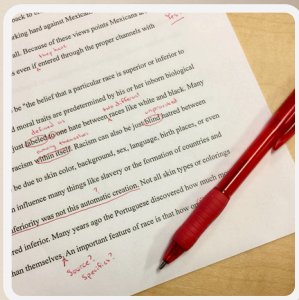 back to
working hard against Mexicans
all. Because of these views points Mexicans
Yes
they have
s even if entered through the proper channels with
be "the belief that a particular race is superior or inferior to
d moral traits are predetermined by his or her inborn biological
defined as two different
labeled one hate between races like white and black. Many
among themselves unprovoked
racism within itself. Racism can also be just blind hatred between
be due to skin color, background, sex, language, birth places, or even
n influence many things like slavery or the formation of countries and
?
nferiority was not this automatic creation. Not all skin types or colorings
red inferior. Many years ago the Portuguese discovered how much
than themselves. An important feature of race is that how
Source?
Specifics?